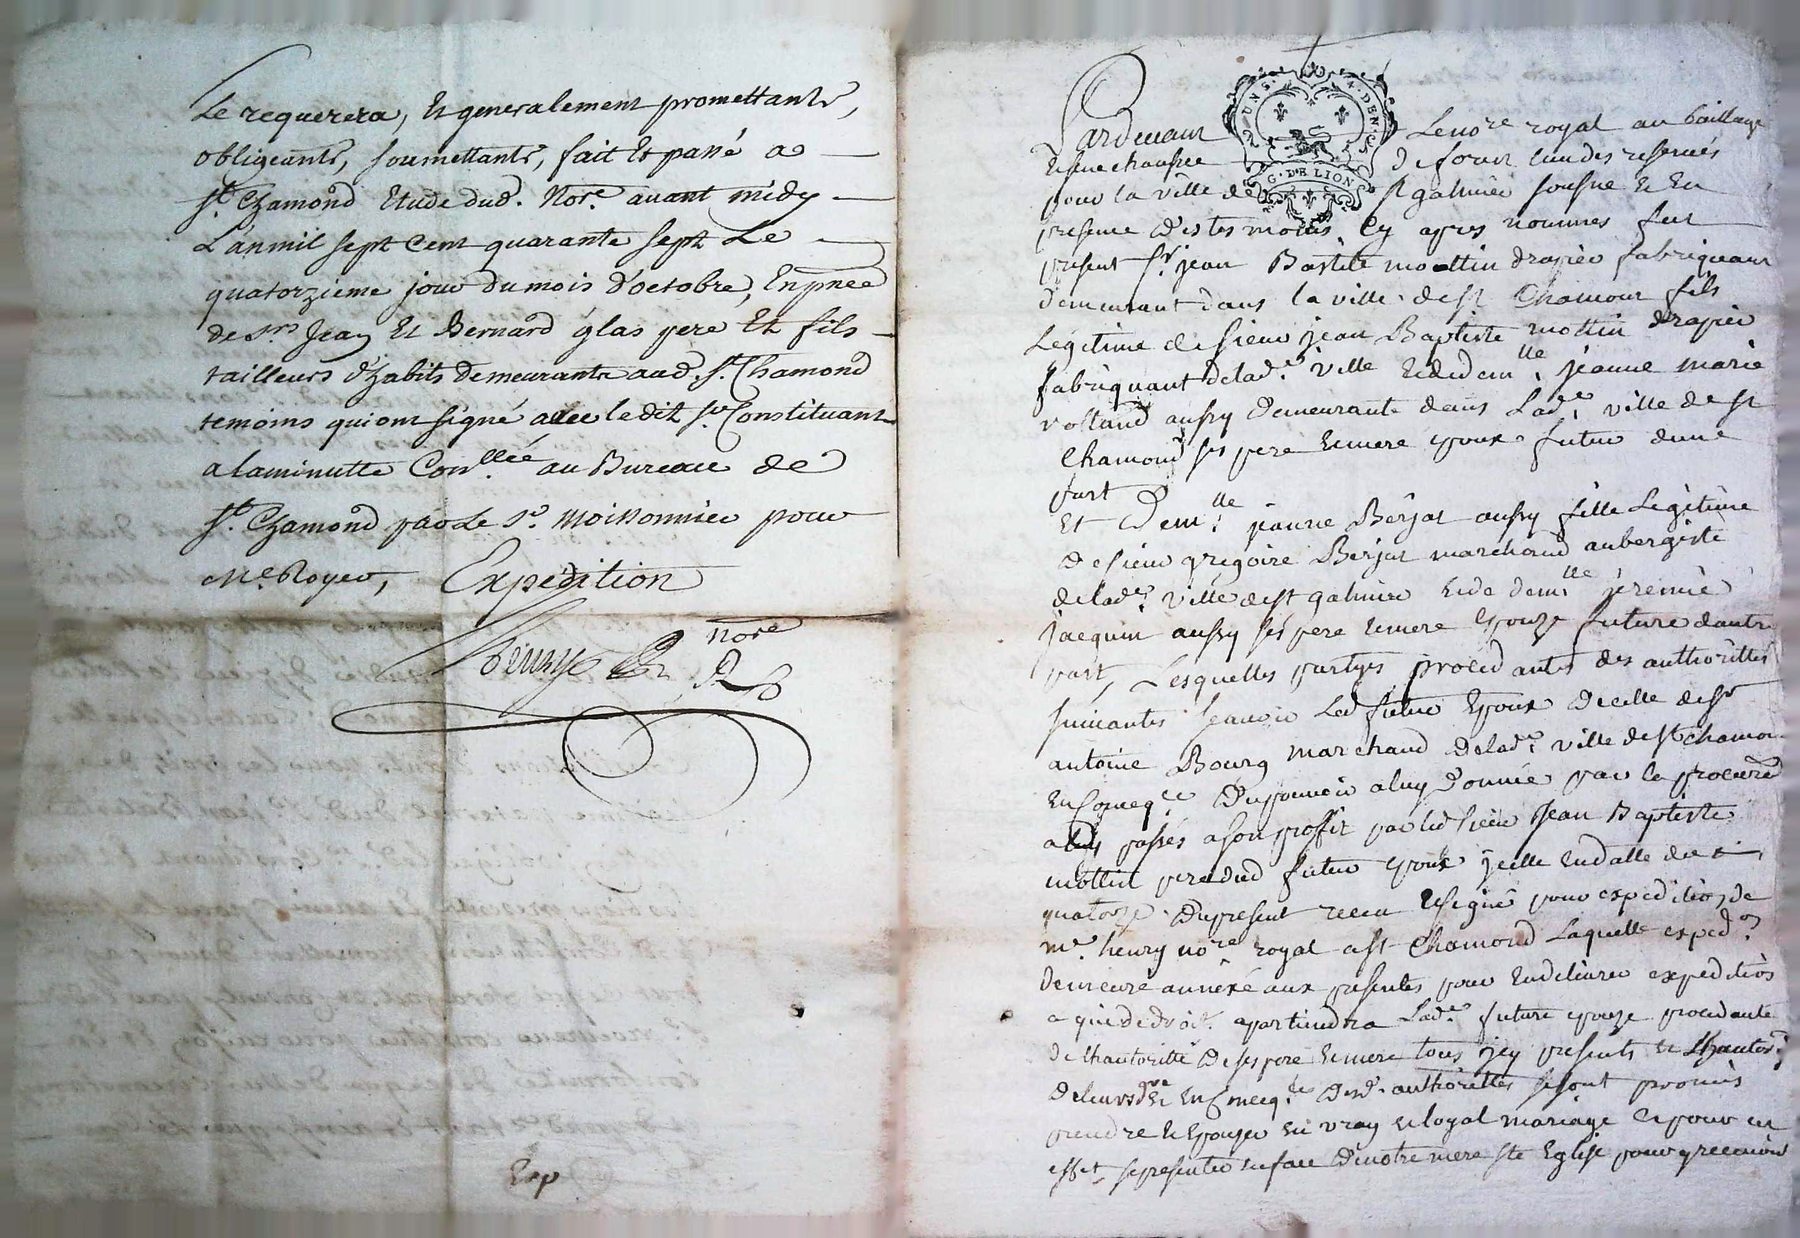 Le requerera, Et generalement promettants,
obligeants, soumettants, fait Et passé a
St. Chamond Etude dud. Nore. avant midy
L'an mil sept Cent quarante sept Le
quatorzieme jour du mois d'octobre, En pnce
de Srs Jean Et Bernard glas pere Et fils
tailleurs d'habits demeurants aud. St. Chamond
temoins qui ont signé avec le dit Sr. Constituant
a la minutte Conllée au Bureau de
St. Chamond par Le Sr. Moissonnier pour
Me. Royer, Expedition
henry
nore
Rl
Exp
UN S. 
DEN.
G. DE LION
Pardevant Le nore royal au baillage
Et senechaussée de forez lun des reservés
pour la ville de st galmier sousne Et En
presence des tesmoins Cy apres nommes fut
present Sr jean Bastite mottin drapier fabriquant
demeurant dans la ville de st Chamont fils
Legitime de sieur jean Baptiste mottin drapier
fabriquant de lade. ville Et de demlle. jeanne marie
voltand aussy demeurante dans Lade. ville de st
Chamond ses pere Et mere Epoux futur dune
part
Et Demlle. jeanne Berjat aussy fille Legitime
de sieur gregoire Berjat marchand aubergiste
de lade. ville de st galmier Et de demlle. jeremie
jacquin aussy ses pere Et mere Epouze future dautre
part, Lesquelles partyes procedantes des authorittés
suivantes scavoir Led futur Epoux de celle de sr
antoine Bourg marchand de lade. ville de st chamon
En Conseqce du pouvoir a luy donnée par la procuraon
passés a son proffit par led sieur Jean Baptiste
mottin pere dud futur Epoux jcelle En datte du
quatorze du present receu Et signé pour expedition de
me. henry nore. royal a st Chamond Laquelle expedon
demeuré annexé aux presentes pour En delivrer expeditions
a qui de droit apartiendra Lade. future epouze procedante
de lhautoritté de ses pere Et mere tous jcy presents Et
de leurs En Conseqce. desd. authorittés se sont promis
prendre Et Epouser En vray Et loyal mariage Et pour cet
effet se presenter En face de notre mere ste Eglise pour y recevoir